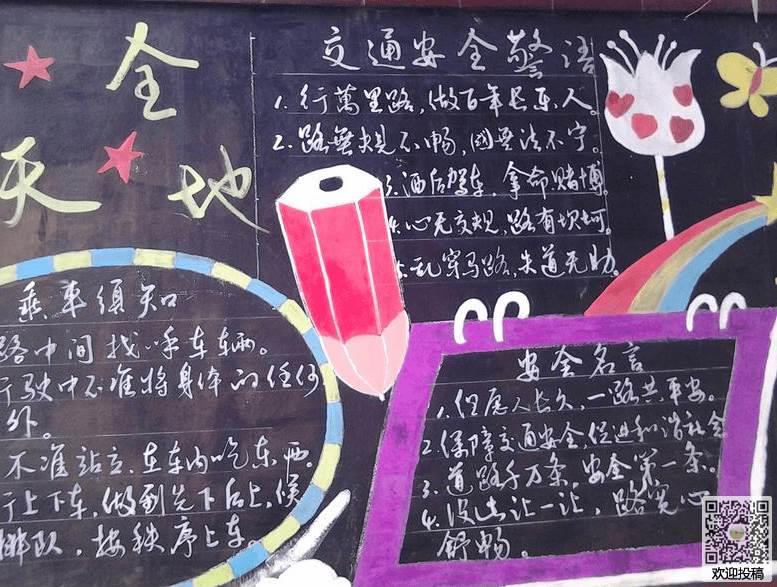 全
天地
交通安全警语
1. 行萬里路,做百年长乐人。
2. 路無规不畅,國無法不宁。
3. 酒后驾车,拿命赌博。
4. 心无交规,路有坎坷。
5. 乱穿马路,失道无助。
乘车须知
路中间找呼车辆。
行驶中不准将身体的任何
外。
不准站立,在车内吃东西。
行上下车,做到先下后上,候
排队,按秩序上车。
安全名言
1. 但愿人长久,一路共平安。
2. 保障交通安全,促进和谐社会
3. 道路千万条,安全第一条。
4. 没走让一让,路宽心
舒畅。
欢迎投稿